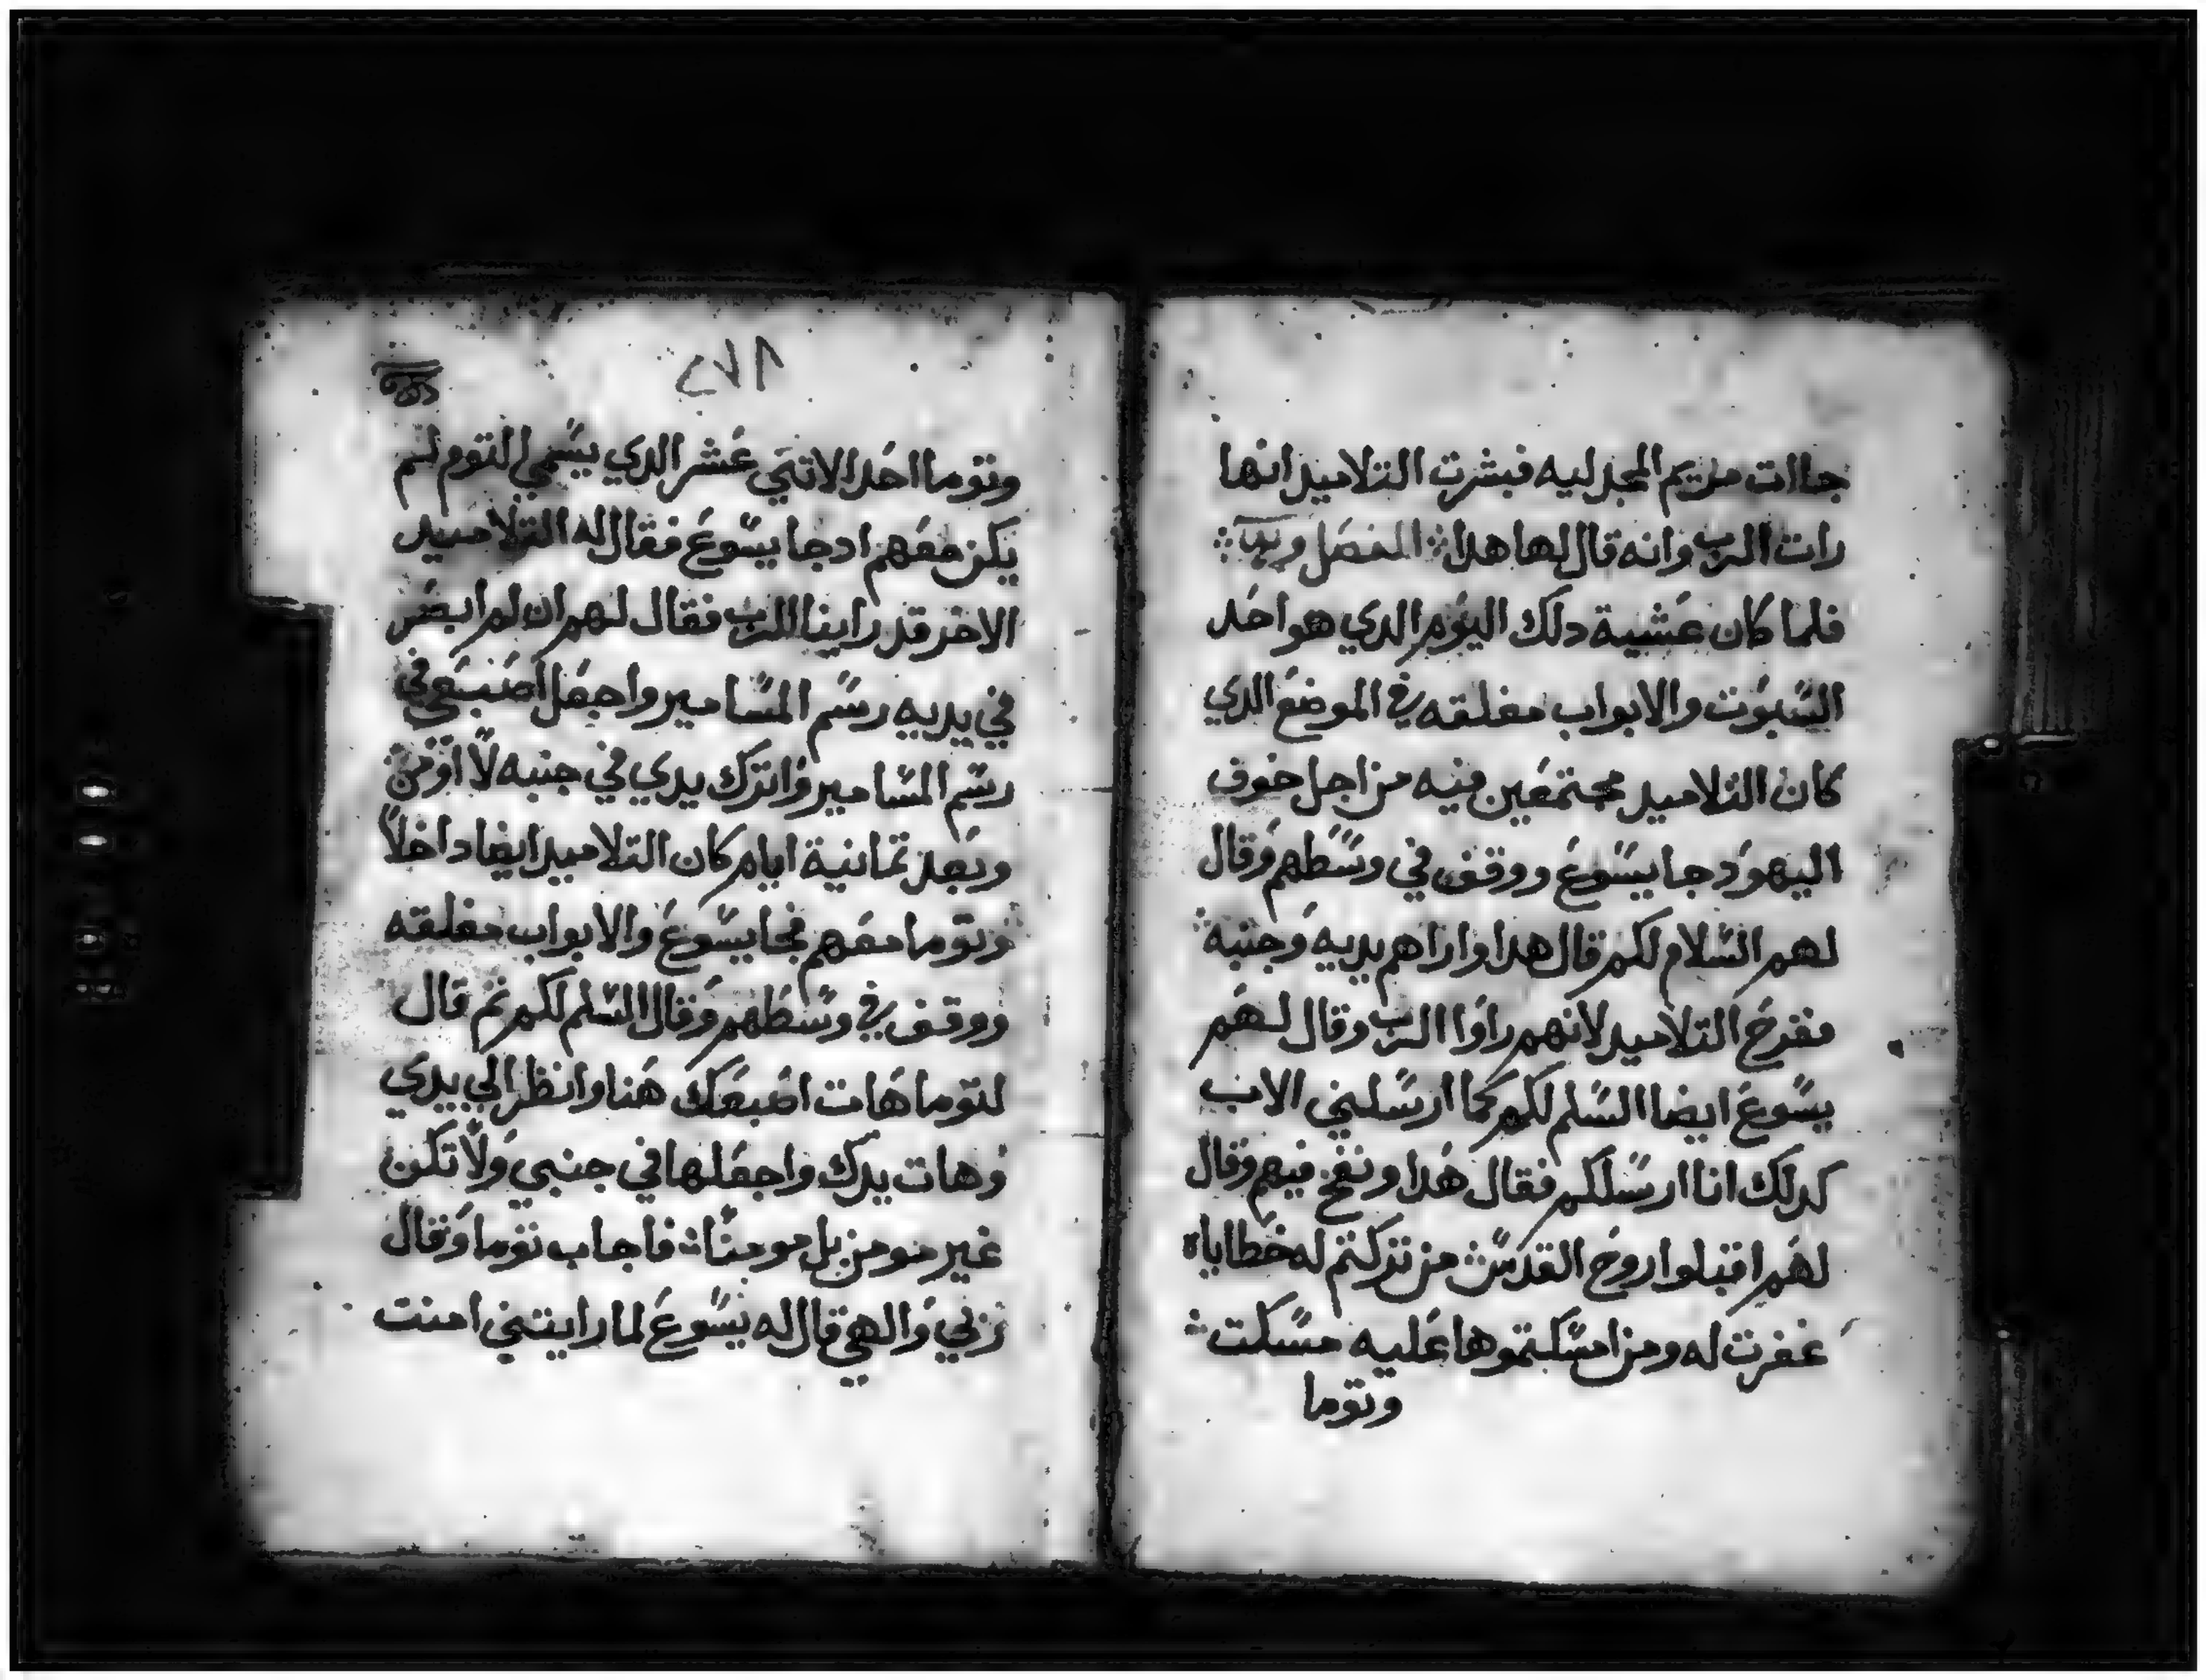 جاات مريم المجدليه فبشرت التلاميد انها
رات الرب وانه قال لها هدا ؞ الفصل
فلما كان عشية دلك اليوم الدي هو احد
السبوت والابواب مغلقه في الموضع الدي
كان التلاميد مجتمعين فيه من اجل خوف
اليهود جا يسوع ووقف في وسطهم وقال
لهم السلام لكم قال هدا واراهم يديه وجنبه
ففرح التلاميد لانهم راوا الرب وقال لهم
يسوع ايضا السلم لكم كما ارسلني الاب
كدلك انا ارسلكم فقال هدا ونفخ فيهم وقال
لهم اقبلوا روح القدس من تركتم له خطاياه
غفرت له ومن امسكتموها عليه مسكت
وتوما
٢٧١
وتوما احد الاتني عشر الدي يسمي التوم لم
يكن معهم ادجا يسوع فقال له التلاميد
الاخر قد راينا الرب فقال لهم ان لم ابصر
في يديه رسم المسامير واجعل اصبعي في
رسم المسامير واترك يدي في جنبه لا اومن
وبعد تمانية ايام كان التلاميد ايضا داخلاً
وتوما معهم فجا يسوع والابواب مغلقه
ووقف في وسطهم وقال السلم لكم تم قال
لتوما هات اصبعك هنا وانظر الي يدي
وهات يدك واجعلها في جنبي ولا تكن
غير مومن بل مومنا فاجاب توما وقال
ربي والهي قال له يسوع لما رايتني امنت